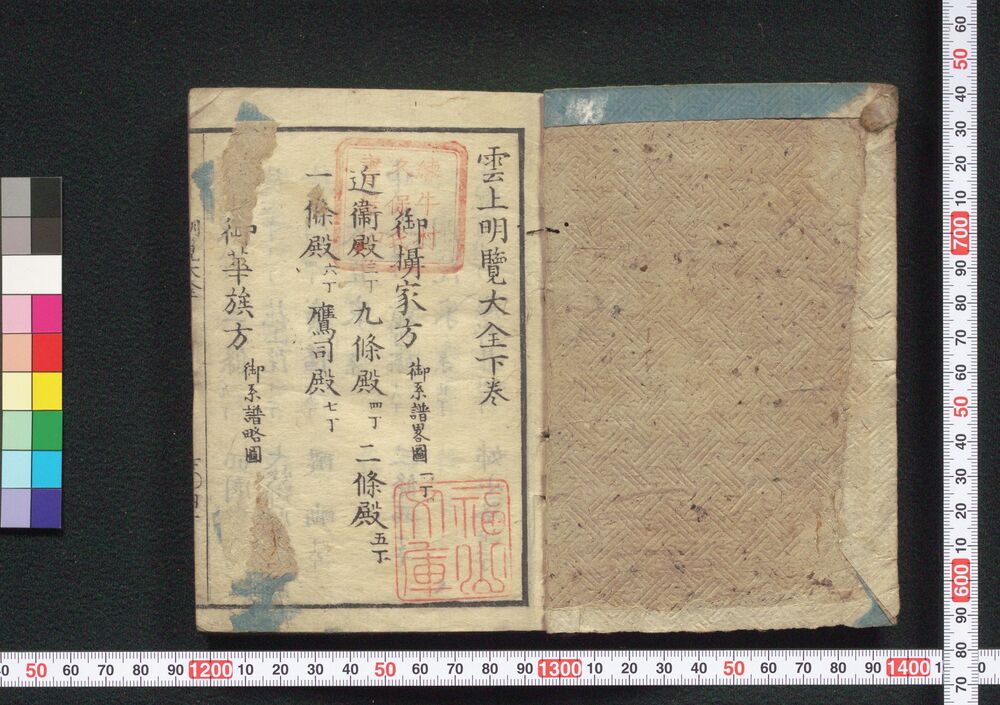 雲上明覽大全下巻
御攝家方 御系譜畧圖 一丁
近衞殿 三丁 九條殿 四丁 二條殿 五丁
一條殿 六丁 鷹司殿 七丁
御華族方 御系譜略圖
福山
文庫
50 60 70 80 90 1200 10 20 30 40 50 60 70 80 90 1300 10 20 30 40 50 60 70 80 90 1400
60 50 40 30 20 10 700 90 80 70 60 50 40 30 20 10 600 90 80 70